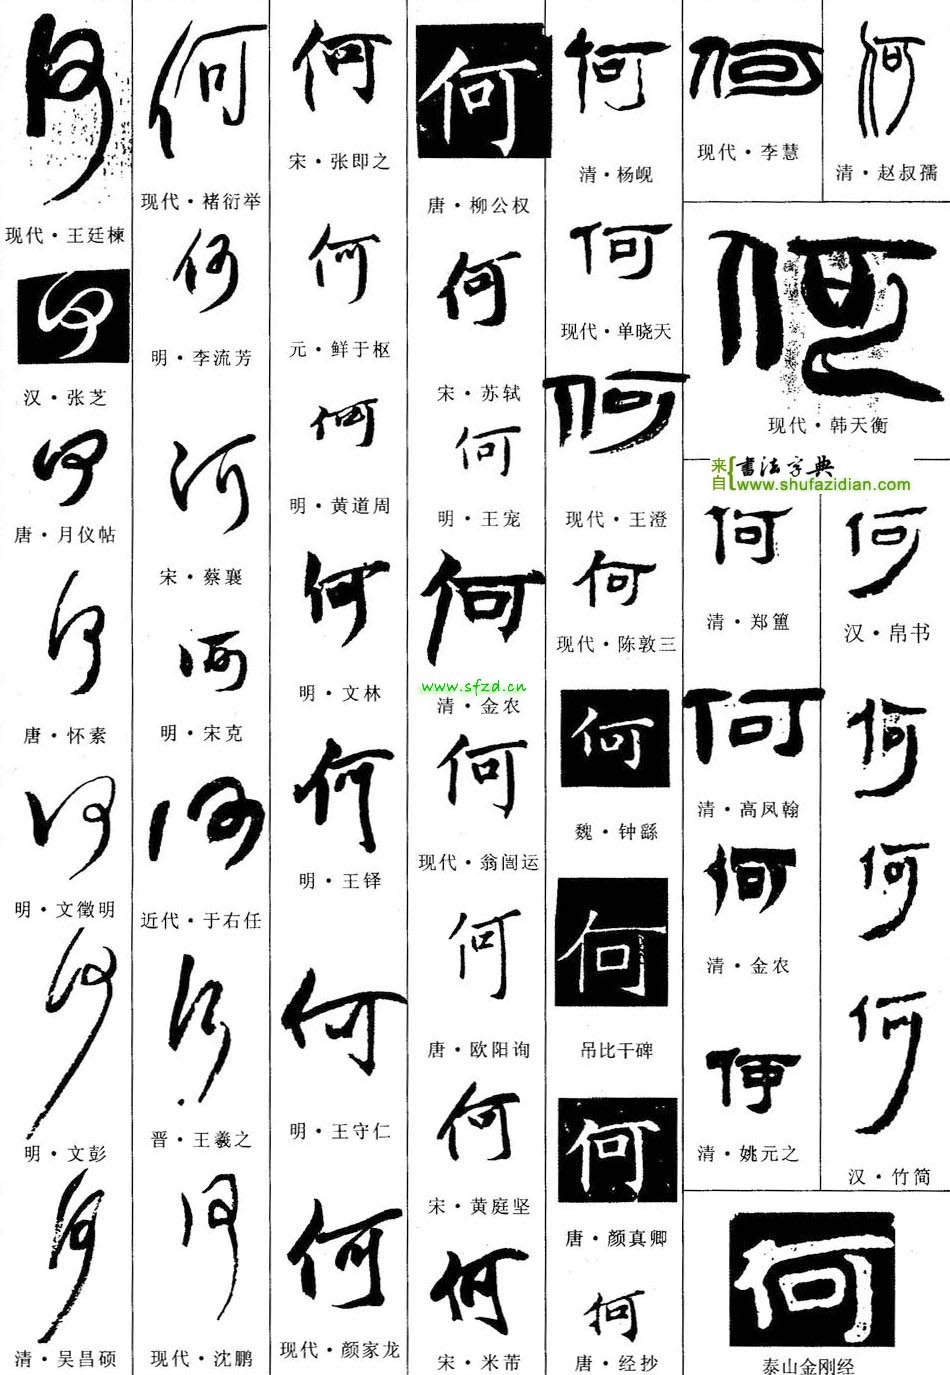 何
现代·王廷楝
何
汉·张芝
何
唐·月仪帖
何
唐·怀素
何
明·文徵明
何
明·文彭
何
清·吴昌硕
何
现代·褚衍举
何
明·李流芳
何
宋·蔡襄
何
明·宋克
何
近代·于右任
何
晋·王羲之
何
现代·沈鹏
何
宋·张即之
何
元·鲜于枢
何
明·黄道周
何
明·文林
何
明·王铎
何
明·王守仁
何
现代·颜家龙
何
唐·柳公权
何
宋·苏轼
何
明·王宠
何
www.sfzd.cn
清·金农
何
现代·翁闿运
何
唐·欧阳询
何
宋·黄庭坚
何
宋·米芾
何
清·杨岘
何
现代·单晓天
何
现代·王澄
何
现代·陈敦三
何
魏·钟繇
何
吊比干碑
何
唐·颜真卿
何
唐·经抄
何
现代·李慧
何
清·赵叔孺
何
现代·韩天衡
来自
书法字典
www.shufazidian.com
何
清·郑簠
何
清·高凤翰
何
清·金农
何
清·姚元之
何
汉·帛书
何
何
何
汉·竹简
何
泰山金刚经